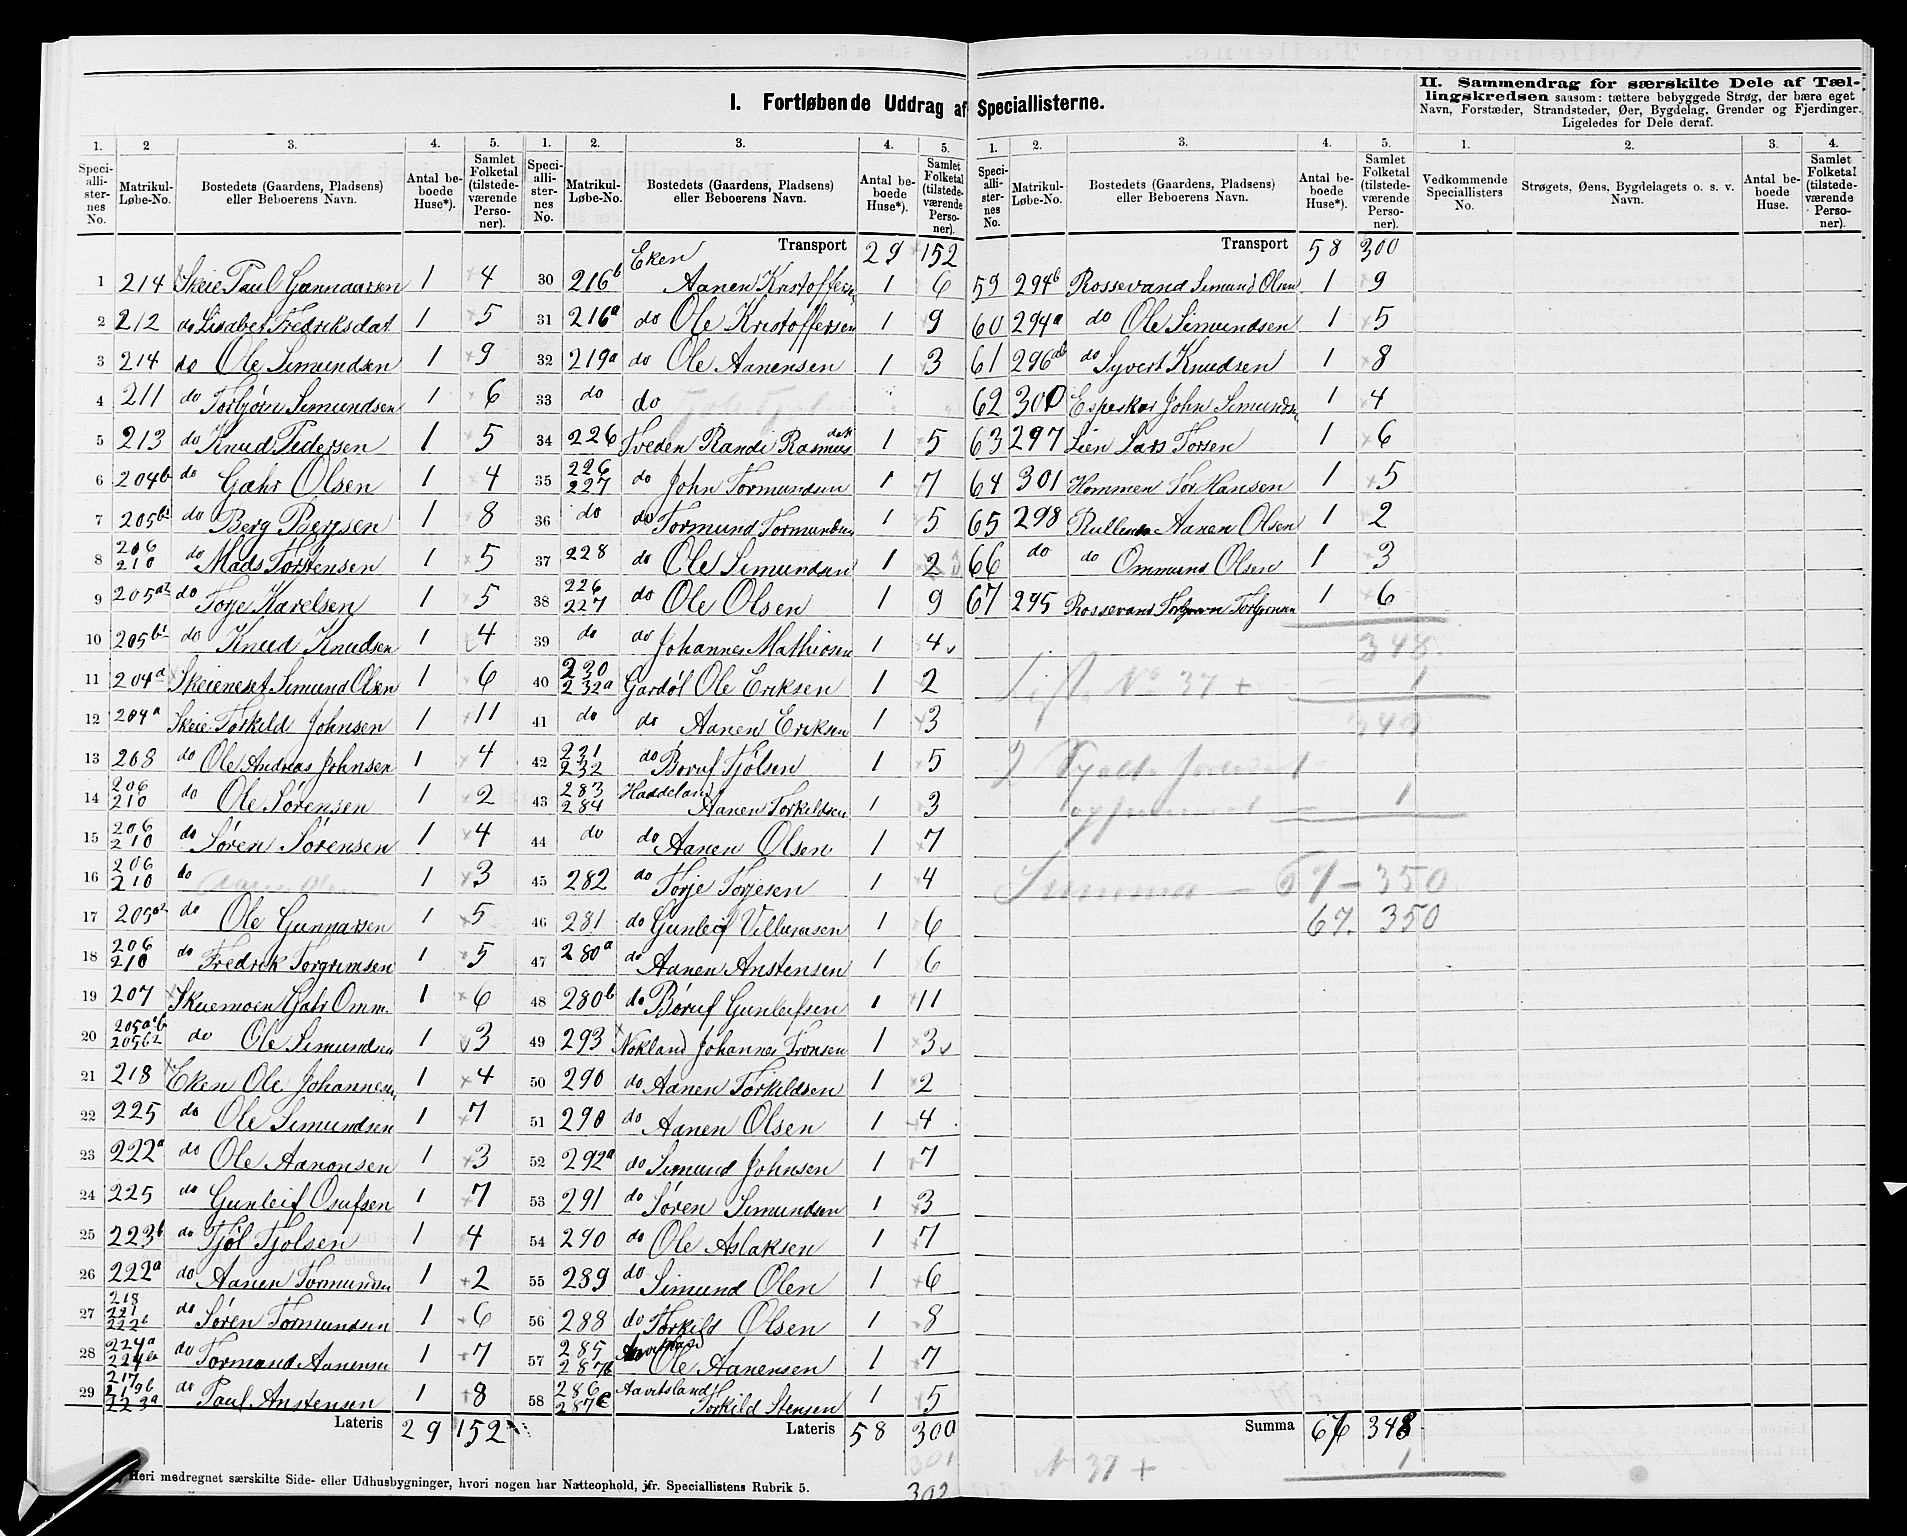 I. Fortløbende Uddrag af Speciallisterne.
II. Sammendrag for særskilte Dele af Tællingskredsen saasom: tættere bebyggede Strøg, der bære eget
Navn, Forstæder, Strandsteder, Øer, Bygdelag, Grender og Fjerdinger.
Ligeledes for Dele deraf.
1. 2 3. 4. 5.
Speciallisternes No. Matrikul-Løbe-No. Bostedets (Gaardens, Pladsens) eller Beboerens Navn. Antal beboede Huse*). Samlet Folketal (tilstedeværende Personer).
1 214 Skeie Paul Gunnarsen 1 4
2 212 do Lisabet Fredriksdat 1 5
3 214 do Ole Simundsen 1 9
4 211 do Torbjørn Simundsen 1 6
5 213 do Knud Pedersen 1 5
6 204b do Gahr Olsen 1 4
7 205b1 do Berg Bergsen 1 8
8 206 210 do Mads Torstensen 1 5
9 205a2 do Torje Karelsen 1 5
10 205b1 do Knud Knudsen 1 4
11 204a Skeieneset Simund Olsen 1 6
12 204a Skeie Torkild Johnsen 1 11
13 208 do Ole Andreas Johnsen 1 4
14 206 210 do Ole Sørensen 1 2
15 206 210 do Søren Sørensen 1 4
16 206 210 do 1 3
17 205a2 do Ole Gunnarsen 1 5
18 206 210 do Fredrik Torgrimsen 1 5
19 207 Skeiemoen Gahr Omm. 1 6
20 205a1b 205b2 do Ole Simundsen 1 3
21 218 Eken Ole Johannesen 1 4
22 225 do Ole Simundsen 1 7
23 222a do Ole Aanonsen 1 3
24 225 do Gunleif Osufsen 1 7
25 223b do Tjøl Tjølsen 1 4
26 222a do Aanen Tormundsen 1 2
27 218 221 222b do Søren Tormundsen 1 6
28 224a 224b do Tormund Aanensen 1 7
29 217 219b 223a do Paul Anstensen 1 8
Lateris 29 152
1. 2. 3. 4. 5.
Speciallisternes No. Matrikul-Løbe-No. Bostedets (Gaardens, Pladsens) eller Beboerens Navn. Antal beboede Huse*). Samlet Folketal (tilstedeværende Personer).
Transport 29 152
30 216b Eken Aanen Kristoffersen 1 6
31 216a do Ole Kristoffersen 1 9
32 219a do Ole Aanensen 1 3
33 do do
34 226 Tveden Randi Rasmusdatt 1 5
35 226 227 do John Tormundsen 1 7
36 do do Tormund Tormundsen 1 5
37 228 do Ole Simundsen 1 2
38 226 227 do Ole Olsen 1 9
39 do do Johannes Mathiesen 1 4
40 230 232a Gardøl Ole Eriksen 1 2
41 do do Aanen Eriksen 1 3
42 231 232 do Boruf Tjølsen 1 5
43 283 284 Haddeland Aanen Torkildsen 1 3
44 do do Aanen Olsen 1 7
45 282 do Torje Torjesen 1 4
46 281 do Gunleif Villumsen 1 6
47 280a do Aanen Anstensen 1 6
48 280b do Børuf Gunleifsen 1 11
49 293 Nokland Johannes Tronsen 1 3
50 290 do Aanen Torkildsen 1 2
51 290 do Aanen Olsen 1 4
52 292a do Simund Johnsen 1 7
53 291 do Søren Simundsen 1 3
54 290 do Ole Aslaksen 1 7
55 289 do Simund Olen 1 6
56 288 do Torkild Olsen 1 8
57 285 287b Ole Aanensen 1 7
58 286 287c Aavitsland Torkild Stensen 1 5
Lateris 58 300
301
302
1. 2. 3. 4. 5.
Speciallisternes No. Matrikul-Løbe-No. Bostedets (Gaardens, Pladsens) eller Beboerens Navn. Antal beboede Huse*). Samlet Folketal (tilstedeværende Personer).
Transport 58 300
59 294b Rossevand Simund Olsen 1 9
60 294a do Ole Simundsen 1 5
61 296ab do Syvert Knudsen 1 8
62 300 Espeskar John Simundsen 1 4
63 297 Lien Lars Torsen 1 6
64 301 Hommen Tor Hansen 1 5
65 298 Aanen Olsen 1 2
66 do do Ommund Olsen 1 3
67 295 Rossevand 1 6
348
List No 37 + 1
349
1
Summa — 67 — 350
67. 350
Summa 67 348
N 37 + 1
1. 2. 3. 4.
Vedkommende Speciallisters No. Strøgets, Øens, Bygdelagets o. s. v. Navn. Antal beboede Huse. Samlet Folketal (tilstedeværende Personer).
Heri medregnet særskilte Side- eller Udhusbygninger, hvori nogen har Natteophold, jfr. Speciallistens Rubrik 5.